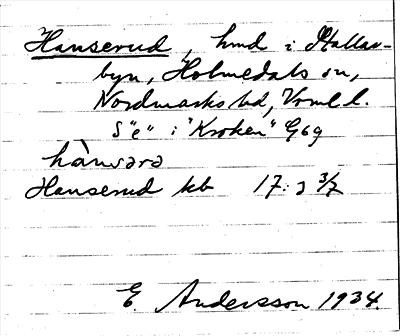 Hanserud, hmd i Stallar-
byn, Holmedals sn,
Nordmarks hd, Vrml l.
S "e" i "Kroken" G69
hànsara
Hanserud kb 17:3 3/7
E. Andersson 1934.